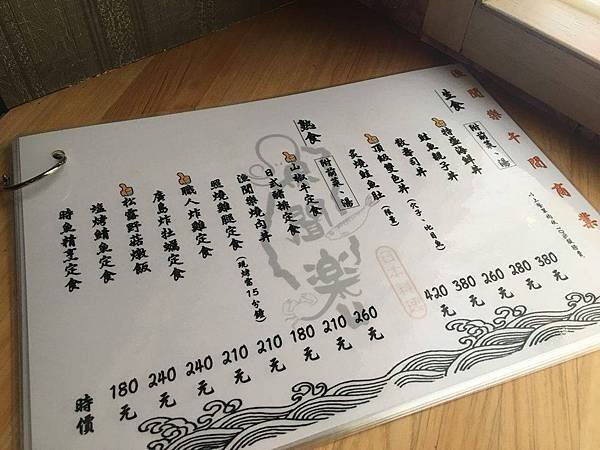 漁聞樂午間商業
生食
附前菜、湯
特盛海鮮丼 380元
鮭魚親子丼 280元
散壽司丼 260元
頂級雙色丼 (限量) 380元
比目魚)
炙燒鮭魚肚丼 420元
熟食
附前菜、湯
椒牛定食 260元
日式豬排定食 210元
漁聞樂燒肉丼 180元
照燒雞腿定食 (現烤需15分鐘) 210元
職人炸雞定食 210元
廣島炸牡蠣定食 240元
松露野菇燉飯 240元
塩烤鯖魚定食 180元
時魚精烹定食 時價
漁聞楽
日本料理